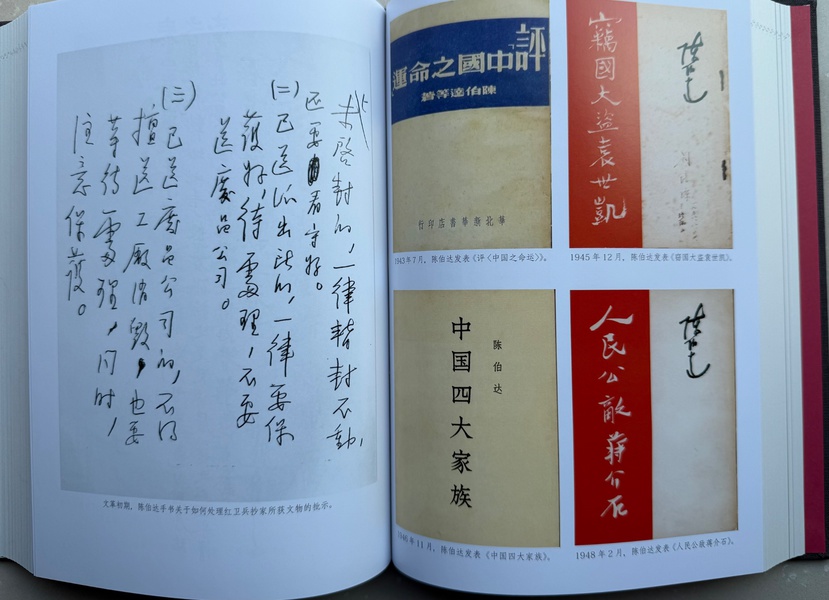 未启封的,一律暂封不動,
还要看守好。
(二)已送派出所的,一律要保
護好待處理,不要
送廢品公司。
(三)已送廢品公司的,不得
擅送工厰消毁,也要
等待處理,同时,
注意保護。
文革初期,陈伯达手书关于如何处理红卫兵抄家所获文物的批示。
評中國之命運
陳伯達等著
華北新華書店印行
1943 年 7 月,陈伯达发表《评〈中国之命运〉》。
竊國大盜袁世凱
陈伯达
1945 年 12 月,陈伯达发表《窃国大盗袁世凯》。
陈伯达
中国四大家族
1946 年 11 月,陈伯达发表《中国四大家族》。
人民公敵蔣介石
陈伯达
1948 年 2 月,陈伯达发表《人民公敌蒋介石》。